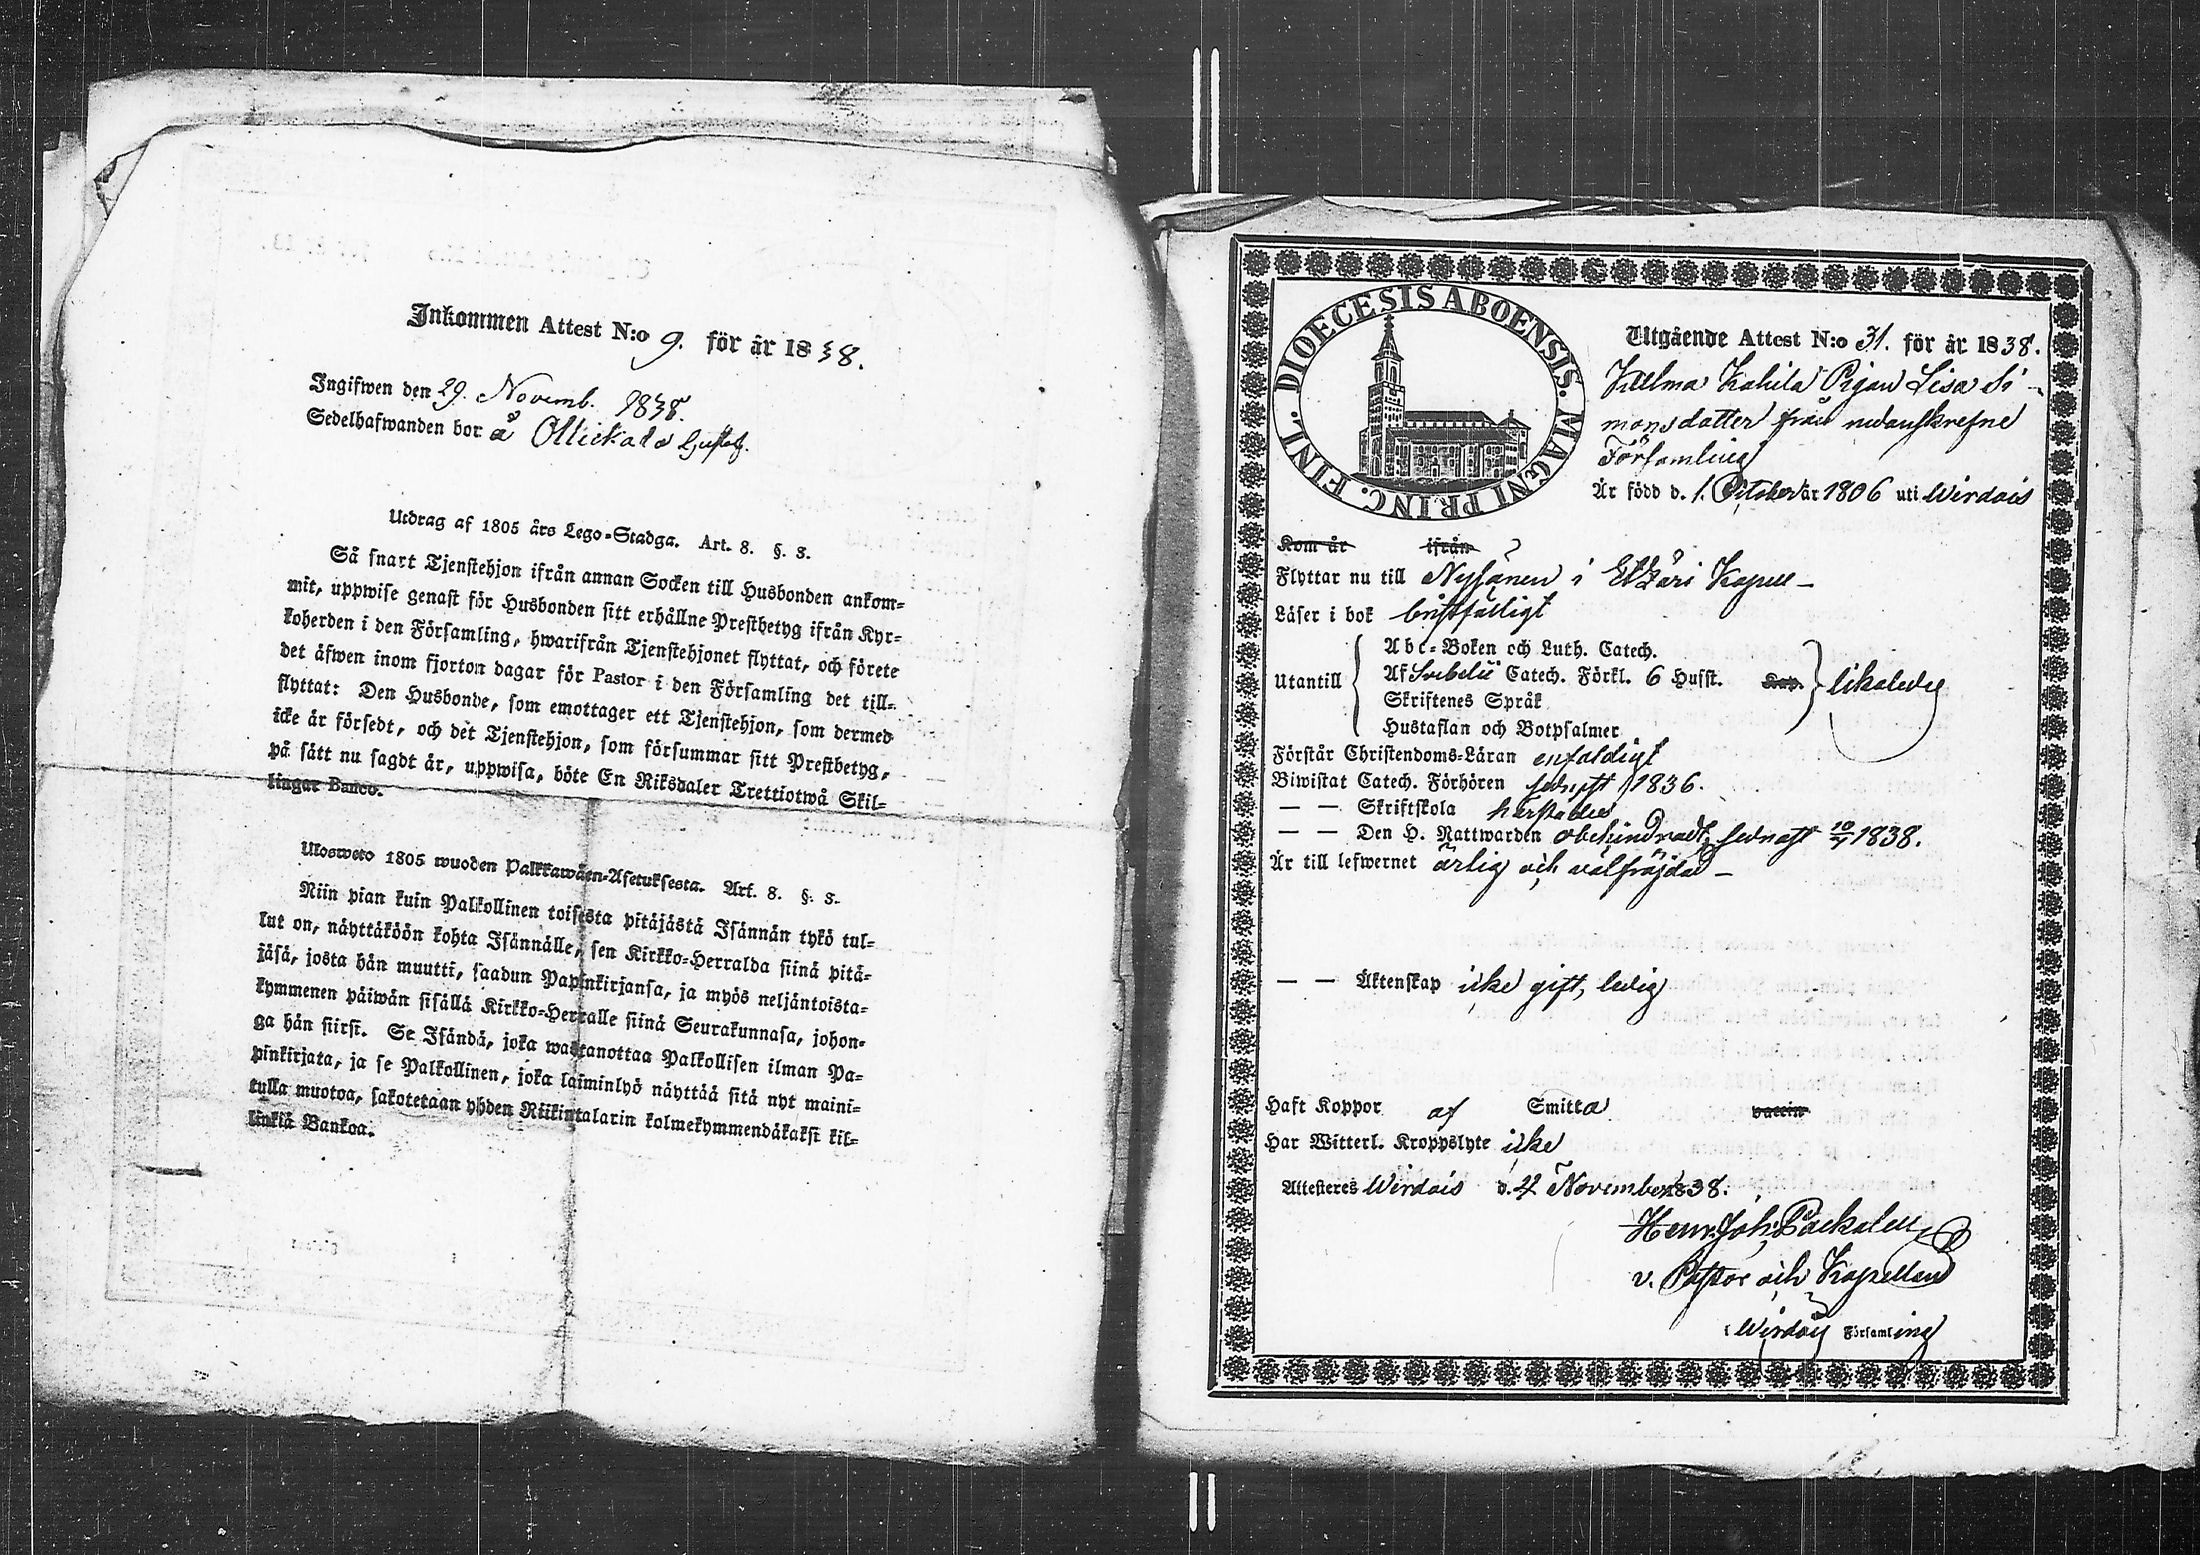 Inkommen Attest N:o 9. för år 1838.
Ingifwen den 29. Novemb. 1838.
Sedelhafwanden bor å Ollickala
Utdrag af 1805 års Lego-Stadga. Art. 8. §. 3.
Så snart Tjenstehjon ifrån annan Socken till Husbonden ankom-
mit, uppwise genast för Husbonden sitt erhållne Prestbetyg ifrån Kyr-
koherden i den Församling, hwarifrån Tjenstehjonet flyttat, och förete
det äfwen inom fjorton dagar för Pastor i den Församling det till-
flyttat: Den Husbonde, som emottager ett Tjenstehjon, som dermed
icke är försedt, och det Tjenstehjon, som försummar sitt Prestbetyg,
på sätt nu sagdt är, uppwisa, böte En Riksdaler Trettiotwå Skil-
lingar Banco.
Ulosweto 1805 wuoden Palkkawäen-Asetuksesta. Art. 8. §. 3.
Niin pian kuin Palkollinen toisesta pitäjästä Isännän tykö tul-
lut on, näyttäköön kohta Isännälle, sen Kirkko-Herralda siinä pitä-
jäsä, josta hän muutti, saadun Papinkirjansa, ja myös neljäntoista-
kymmenen päiwän sisällä Kirkko-Herralle siinä Seurakunnasa, johon-
ga hän siirsi. Se Isändä, joka wastanottaa Palkollisen ilman Pa-
pinkirjata, ja se Palkollinen, joka laiminlyö näyttää sitä nyt maini-
tulla muotoa, sakotetaan yhden Riikintalarin kolmekymmendäkaksi kil-
linkiä Bankoa.
DIOECESIS ABOENSIS. MAGNI PRINC. FINL.
Utgående Attest N:o 31. för år 1838.
Pigan Lisa Si-
monsdotter från nedanskrefne
Församling
Är född d. 1. October år 1806 uti Wirdois
Kom år ifrån
Flyttar nu till Nysänen i Etzäri Kapell
Läser i bok bristfälligt
Utantill
Abc-Boken och Luth. Catech.
Af Svebelii Catech. Förkl. 6 Hufst. Kap. likaledes
Skriftenes Språk
Hustaflan och Botpsalmer
Förstår Christendoms-Läran enfaldigt
Biwistat Catech. Förhören sednast 1836.
— — Skriftskola härstädes
— — Den H. Nattwarden obehindradt, sednast 1838.
Är till lefwernet ärlig och välfräjdad
— — Äktenskap icke gift, ledig
Haft Koppor af Smitta vaccin
Har Witterl. Kroppslyte icke
Attesteres Wirdois d. 4 November 1838.
Henr. Joh. Backalen
v. Pastor och Kapellan
i Wirdois Församling